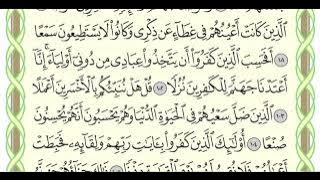 ٱلَّذِينَ كَانَتۡ أَعۡيُنُهُمۡ فِي غِطَآءٍ عَن ذِكۡرِي وَكَانُواْ لَا يَسۡتَطِيعُونَ سَمۡعًا
١٠١ أَفَحَسِبَ ٱلَّذِينَ كَفَرُوٓاْ أَن يَتَّخِذُواْ عِبَادِي مِن دُونِيٓ أَوۡلِيَآءَۚ إِنَّآ
أَعۡتَدۡنَا جَهَنَّمَ لِلۡكَٰفِرِينَ نُزُلٗا ١٠٢ قُلۡ هَلۡ نُنَبِّئُكُم بِٱلۡأَخۡسَرِينَ أَعۡمَٰلًا
١٠٣ ٱلَّذِينَ ضَلَّ سَعۡيُهُمۡ فِي ٱلۡحَيَوٰةِ ٱلدُّنۡيَا وَهُمۡ يَحۡسَبُونَ أَنَّهُمۡ يُحۡسِنُونَ
صُنۡعًا ١٠٤ أُوْلَٰٓئِكَ ٱلَّذِينَ كَفَرُواْ بِـَٔايَٰتِ رَبِّهِمۡ وَلِقَآئِهِۦ فَحَبِطَتۡ